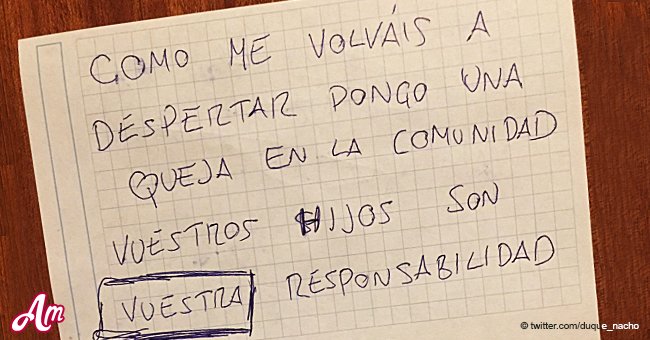 COMO ME VOLVÁIS A
DESPERTAR PONGO UNA
QUEJA EN LA COMUNIDAD
VUESTROS HIJOS SON
VUESTRA RESPONSABILIDAD
Am
© twitter.com/duque_nacho